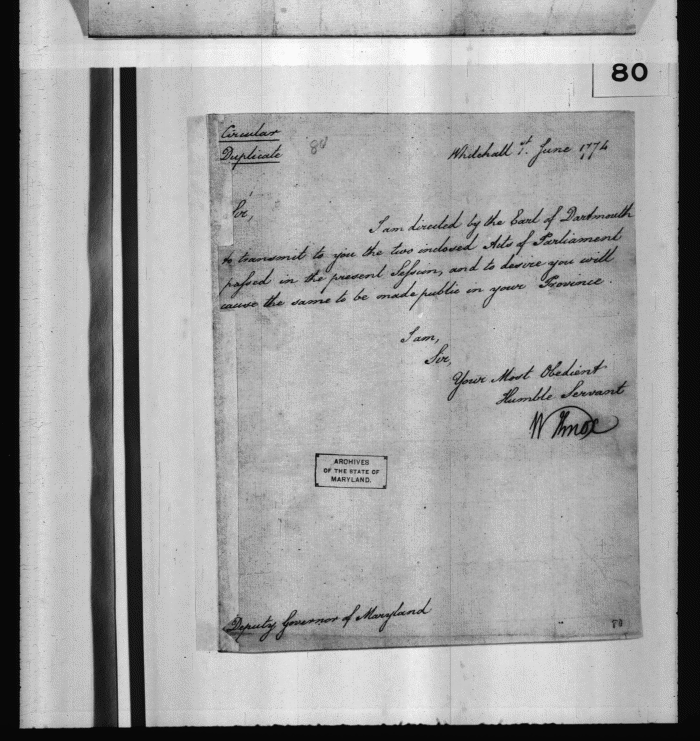 80
Circular
Duplicate
80
Whitehall 7th June 1774
Sir,
I am directed by the Earl of Dartmouth
to transmit to you the two inclosed Acts of Parliament
passed in the present Session, and to desire you will
cause the same to be made public in your Province.
I am,
Sir,
Your Most Obedient
Humble Servant
W Knox
ARCHIVES
OF THE STATE OF
MARYLAND.
Deputy Governor of Maryland